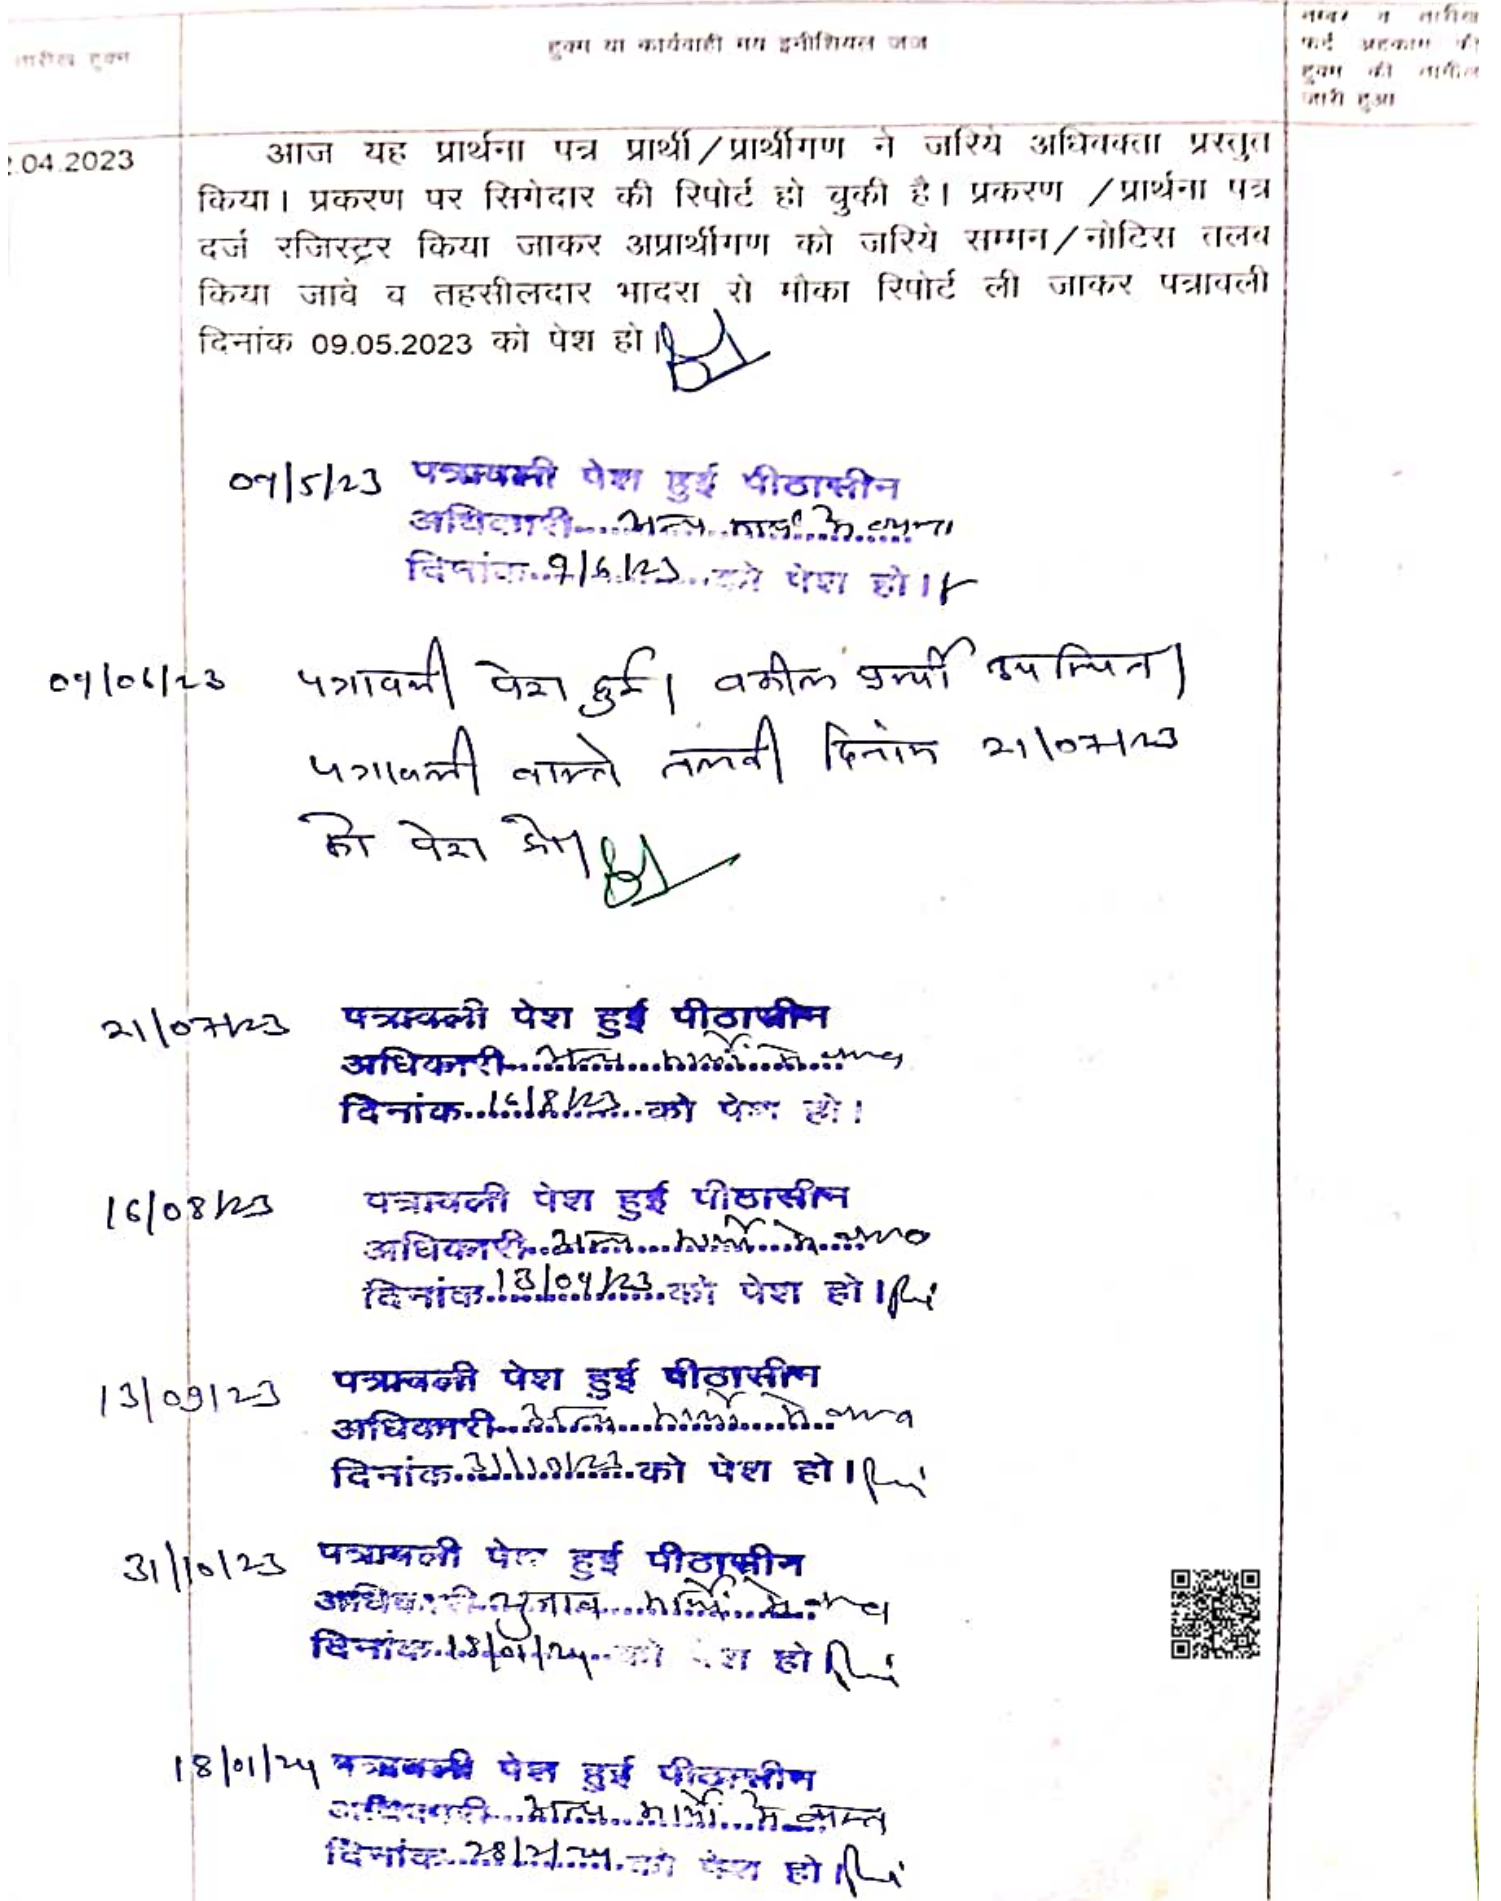 तारीख हुक्म
हुक्म या कार्यवाही मय इनीशियल जज
नम्बर व तारीख
फर्द अहकाम की
हुक्म की तामील
जारी हुआ
.04.2023
आज यह प्रार्थना पत्र प्रार्थी/प्रार्थीगण ने जरिये अधिवक्ता प्रस्तुत
किया। प्रकरण पर सिगेदार की रिपोर्ट हो चुकी है। प्रकरण /प्रार्थना पत्र
दर्ज रजिस्ट्रर किया जाकर अप्रार्थीगण को जरिये सम्मन/नोटिस तलब
किया जावे व तहसीलदार भादरा से मौका रिपोर्ट ली जाकर पत्रावली
दिनांक 09.05.2023 को पेश हो।
09/5/23 पत्रावली पेश हुई पीठासीन
अधिकारी अन्य कार्य में व्यस्त
दिनांक 9/6/23 को पेश हो।
09/06/23 पत्रावली पेश हुई। वकील प्रार्थी उपस्थित।
पत्रावली वास्ते तलबी दिनांक 21/07/23
को पेश हो।
21/07/23 पत्रावली पेश हुई पीठासीन
अधिकारी अन्य कार्यों में व्यस्त
दिनांक 16/8/23 को पेश हो।
16/08/23 पत्रावली पेश हुई पीठासीन
अधिकारी अन्य कार्यों में व्यस्त
दिनांक 13/09/23 को पेश हो।
13/09/23 पत्रावली पेश हुई पीठासीन
अधिकारी अन्य कार्यों में व्यस्त
दिनांक 31/10/23 को पेश हो।
31/10/23 पत्रावली पेश हुई पीठासीन
अधिकारी चुनाव कार्यों में व्यस्त
दिनांक 18/01/24 को पेश हो
18/01/24 पत्रावली पेश हुई पीठासीन
अधिकारी अन्य कार्यों में व्यस्त
दिनांक 28/2/24 को पेश हो।